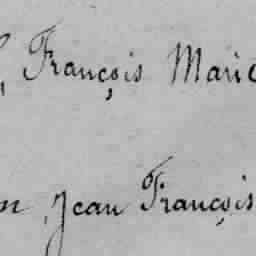 François Marie
Jean François